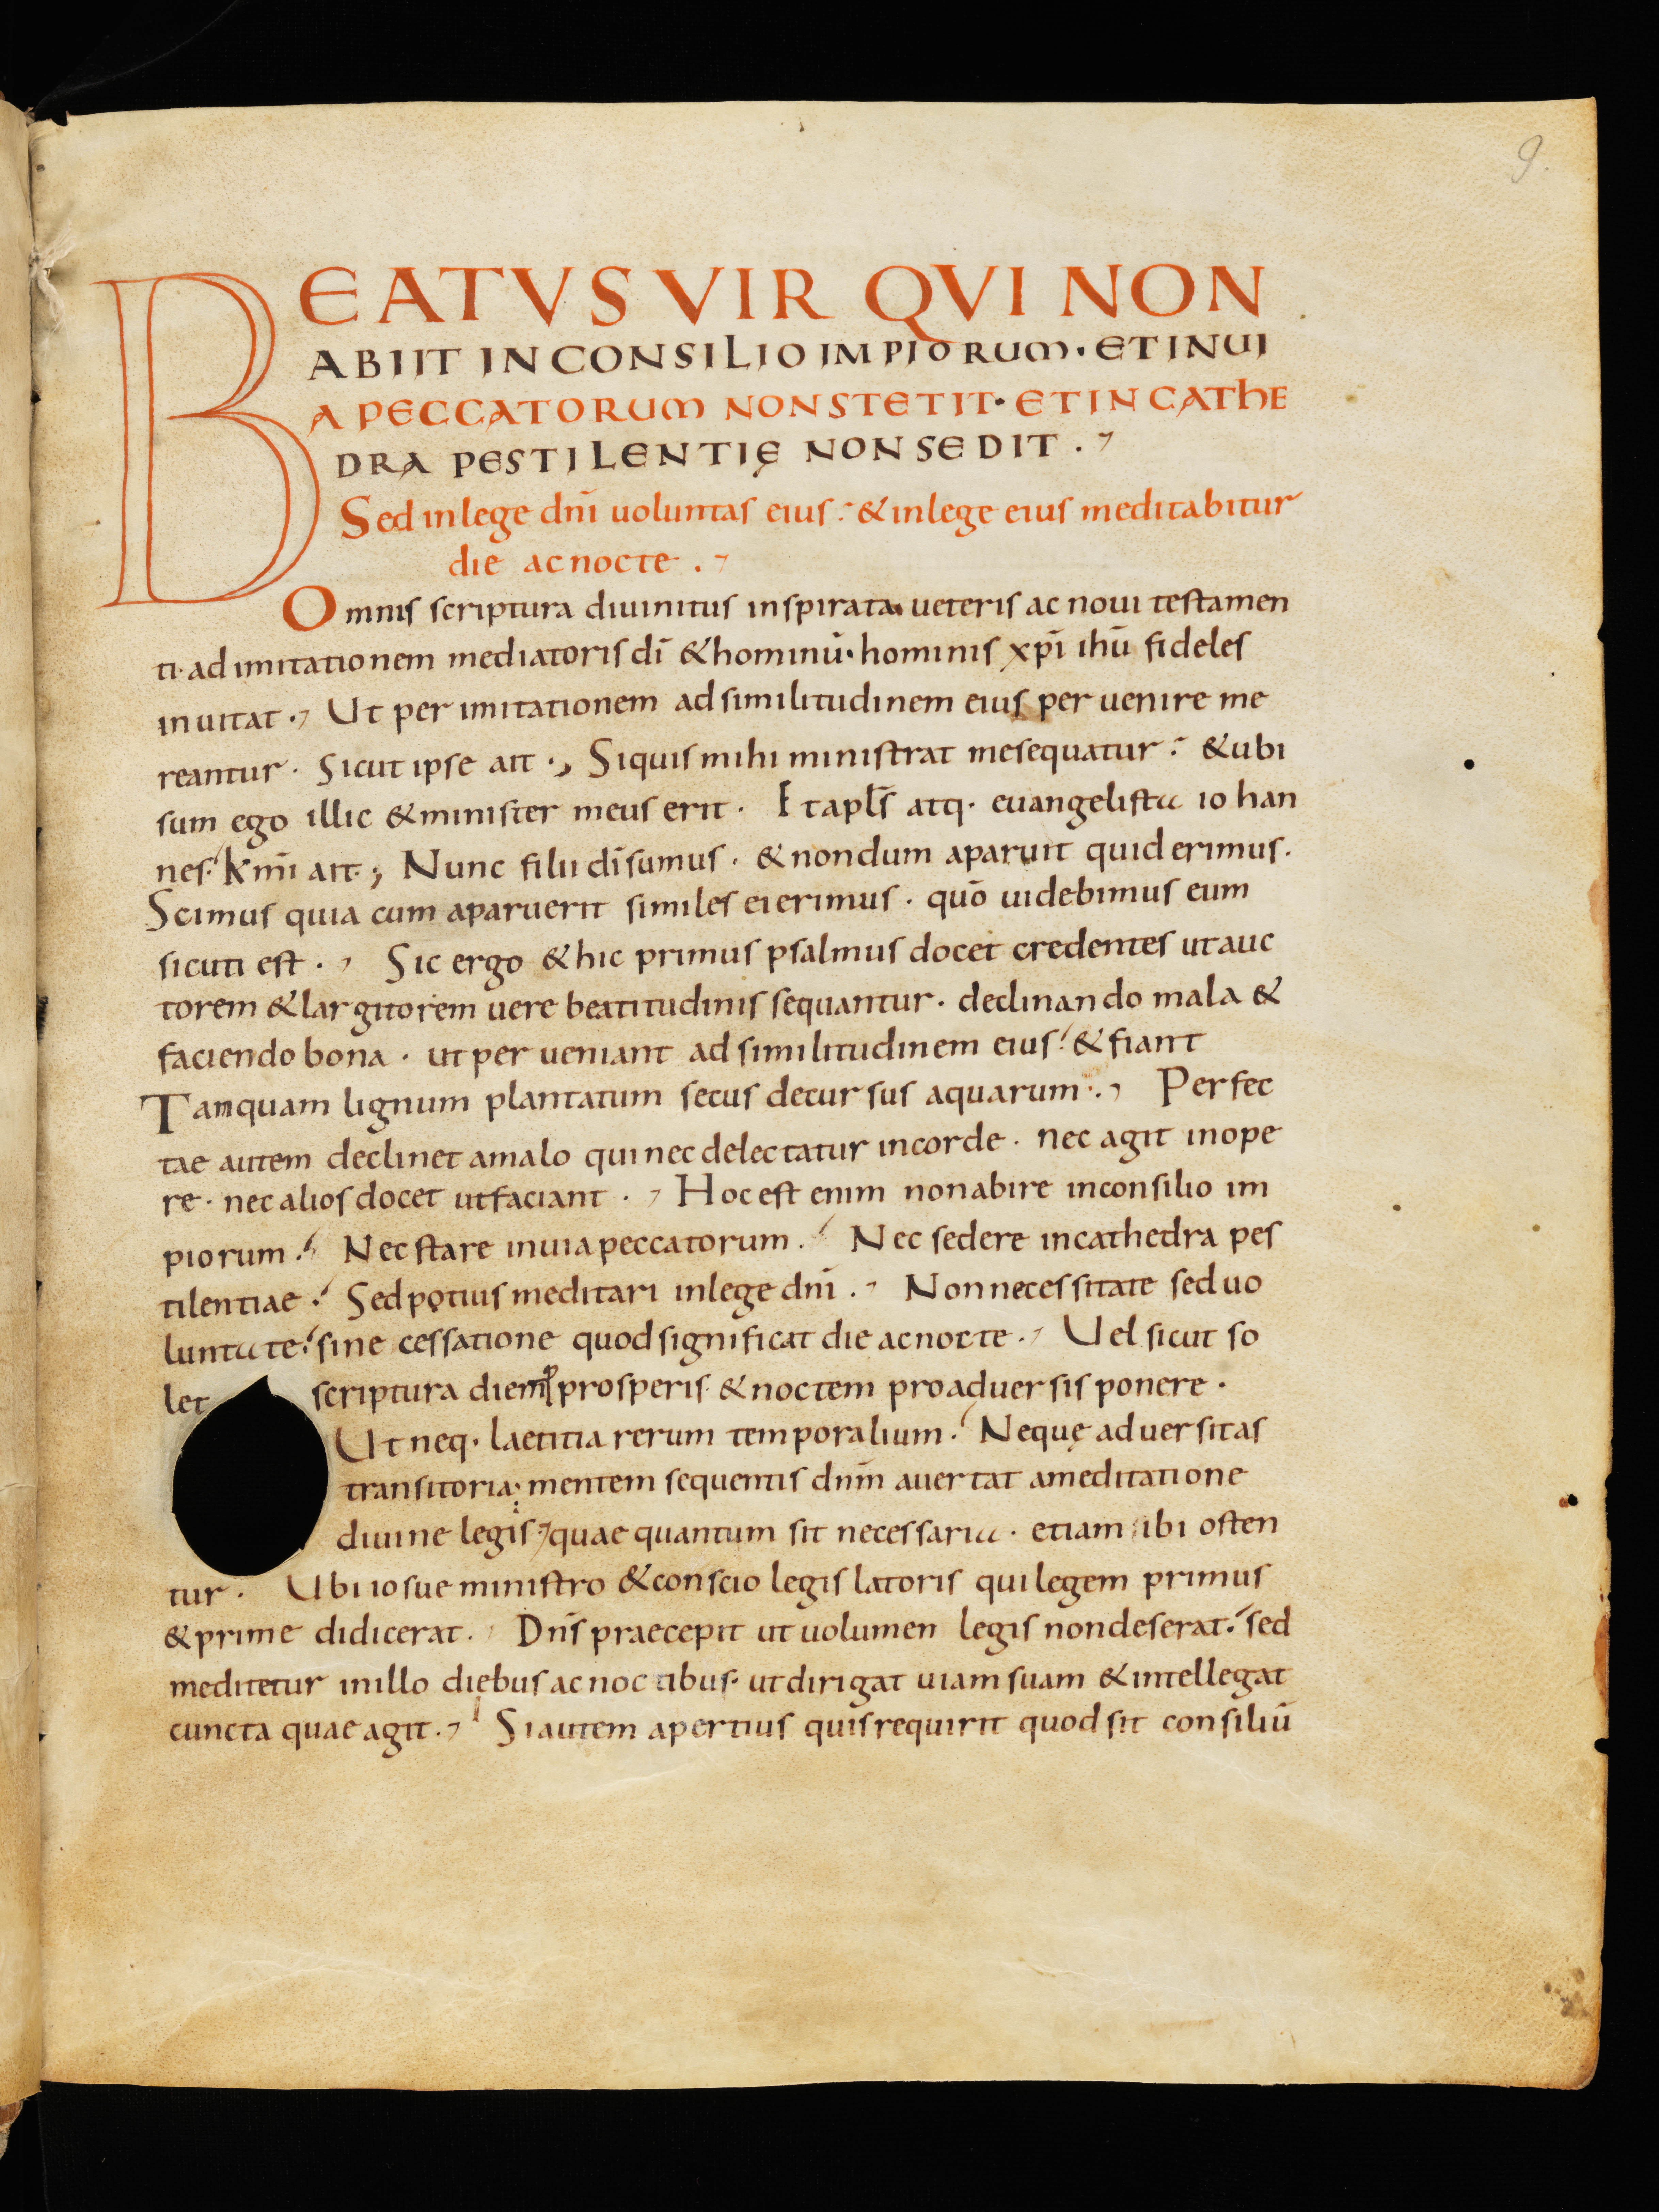 9.
BEATVS VIR QVI NON
ABIIT IN CONSILIO IMPIORUM · ET IN UI
A PECCATORUM NON STETIT · ET IN CATHE
DRA PESTILENTIĘ NON SEDIT .
Sed in lege dnī uoluntas eius : & in lege eius meditabitur
die ac nocte .
Omnis scriptura diuinitus inspirata ueteris ac noui testamen
ti · ad imitationem mediatoris dī & hominū · hominis xpī ihū fideles
inuitat . Ut per imitationem ad similitudinem eius peruenire me
reantur · Sicut ipse ait . Siquis mihi ministrat me sequatur : & ubi
sum ego illic & minister meus erit · Et apls̄ atq· euangelista iohan
nes · kmī ait ; Nunc filii dī sumus · & nondum aparuit quid erimus ·
Scimus quia cum aparuerit similes ei erimus · quō uidebimus eum
sicuti est . Sic ergo & hic primus psalmus docet credentes ut auc
torem & largitorem uere beatitudinis sequantur · declinando mala &
faciendo bona · ut perueniant ad similitudinem eius : & fiant
Tamquam lignum plantatum secus decursus aquarum . Perfec
tae autem declinet a malo qui nec delectatur in corde · nec agit in ope
re · nec alios docet ut faciant . Hoc est enim non abire in consilio im
piorum . Nec stare in uia peccatorum . Nec sedere in cathedra pes
tilentiae . Sed potius meditari in lege dnī . Non necessitate sed uo
luntate : sine cessatione quod significat die ac nocte . Uel sicut so
let scriptura diem p prosperis & noctem pro aduersis ponere ·
Ut neq· laetitia rerum temporalium . Nequę aduersitas
transitoria ; mentem sequentis dnm̄ auertat a meditatione
diuine legis quae quantum sit necessaria · etiam ibi osten
tur · Ubi iosue ministro & conscio legislatoris qui legem primus
& prime didicerat . Dns̄ praecepit ut uolumen legis non deserat : sed
meditetur in illo diebus ac noctibus · ut dirigat uiam suam & intellegat
cuncta quae agit . Si autem apertius quis requirit quod sit consiliū